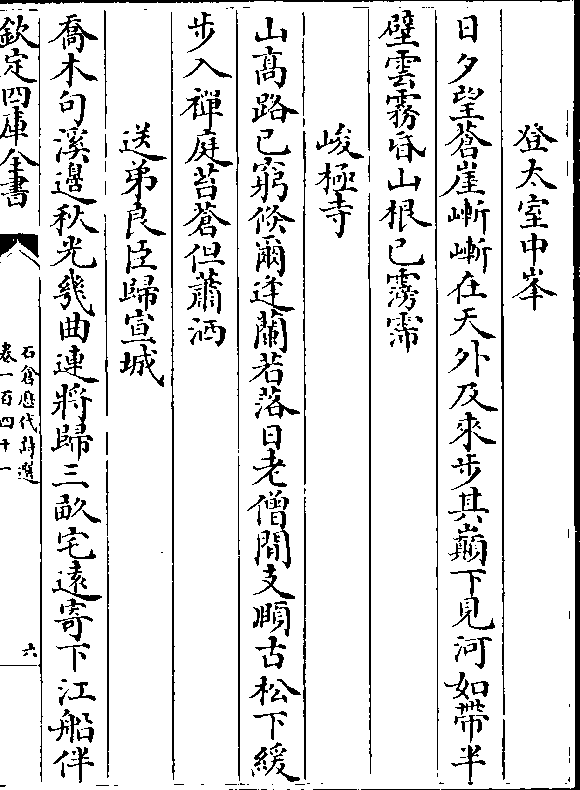 登太室中峯
日夕望蒼崖嶄嶄在天外及來步其巔下見河如帶半
壁雲霧昏山根已霶霈
峻極寺
山髙路已窮倐爾逢蘭若落日老僧閒支頤古松下緩
步入禪庭苔蒼但蕭洒
送弟良臣歸宣城
喬木句溪邉秋光幾曲連將歸三畝宅遠寄下江船伴
欽定四庫全書
石倉歴代詩選
卷一百四十一
六